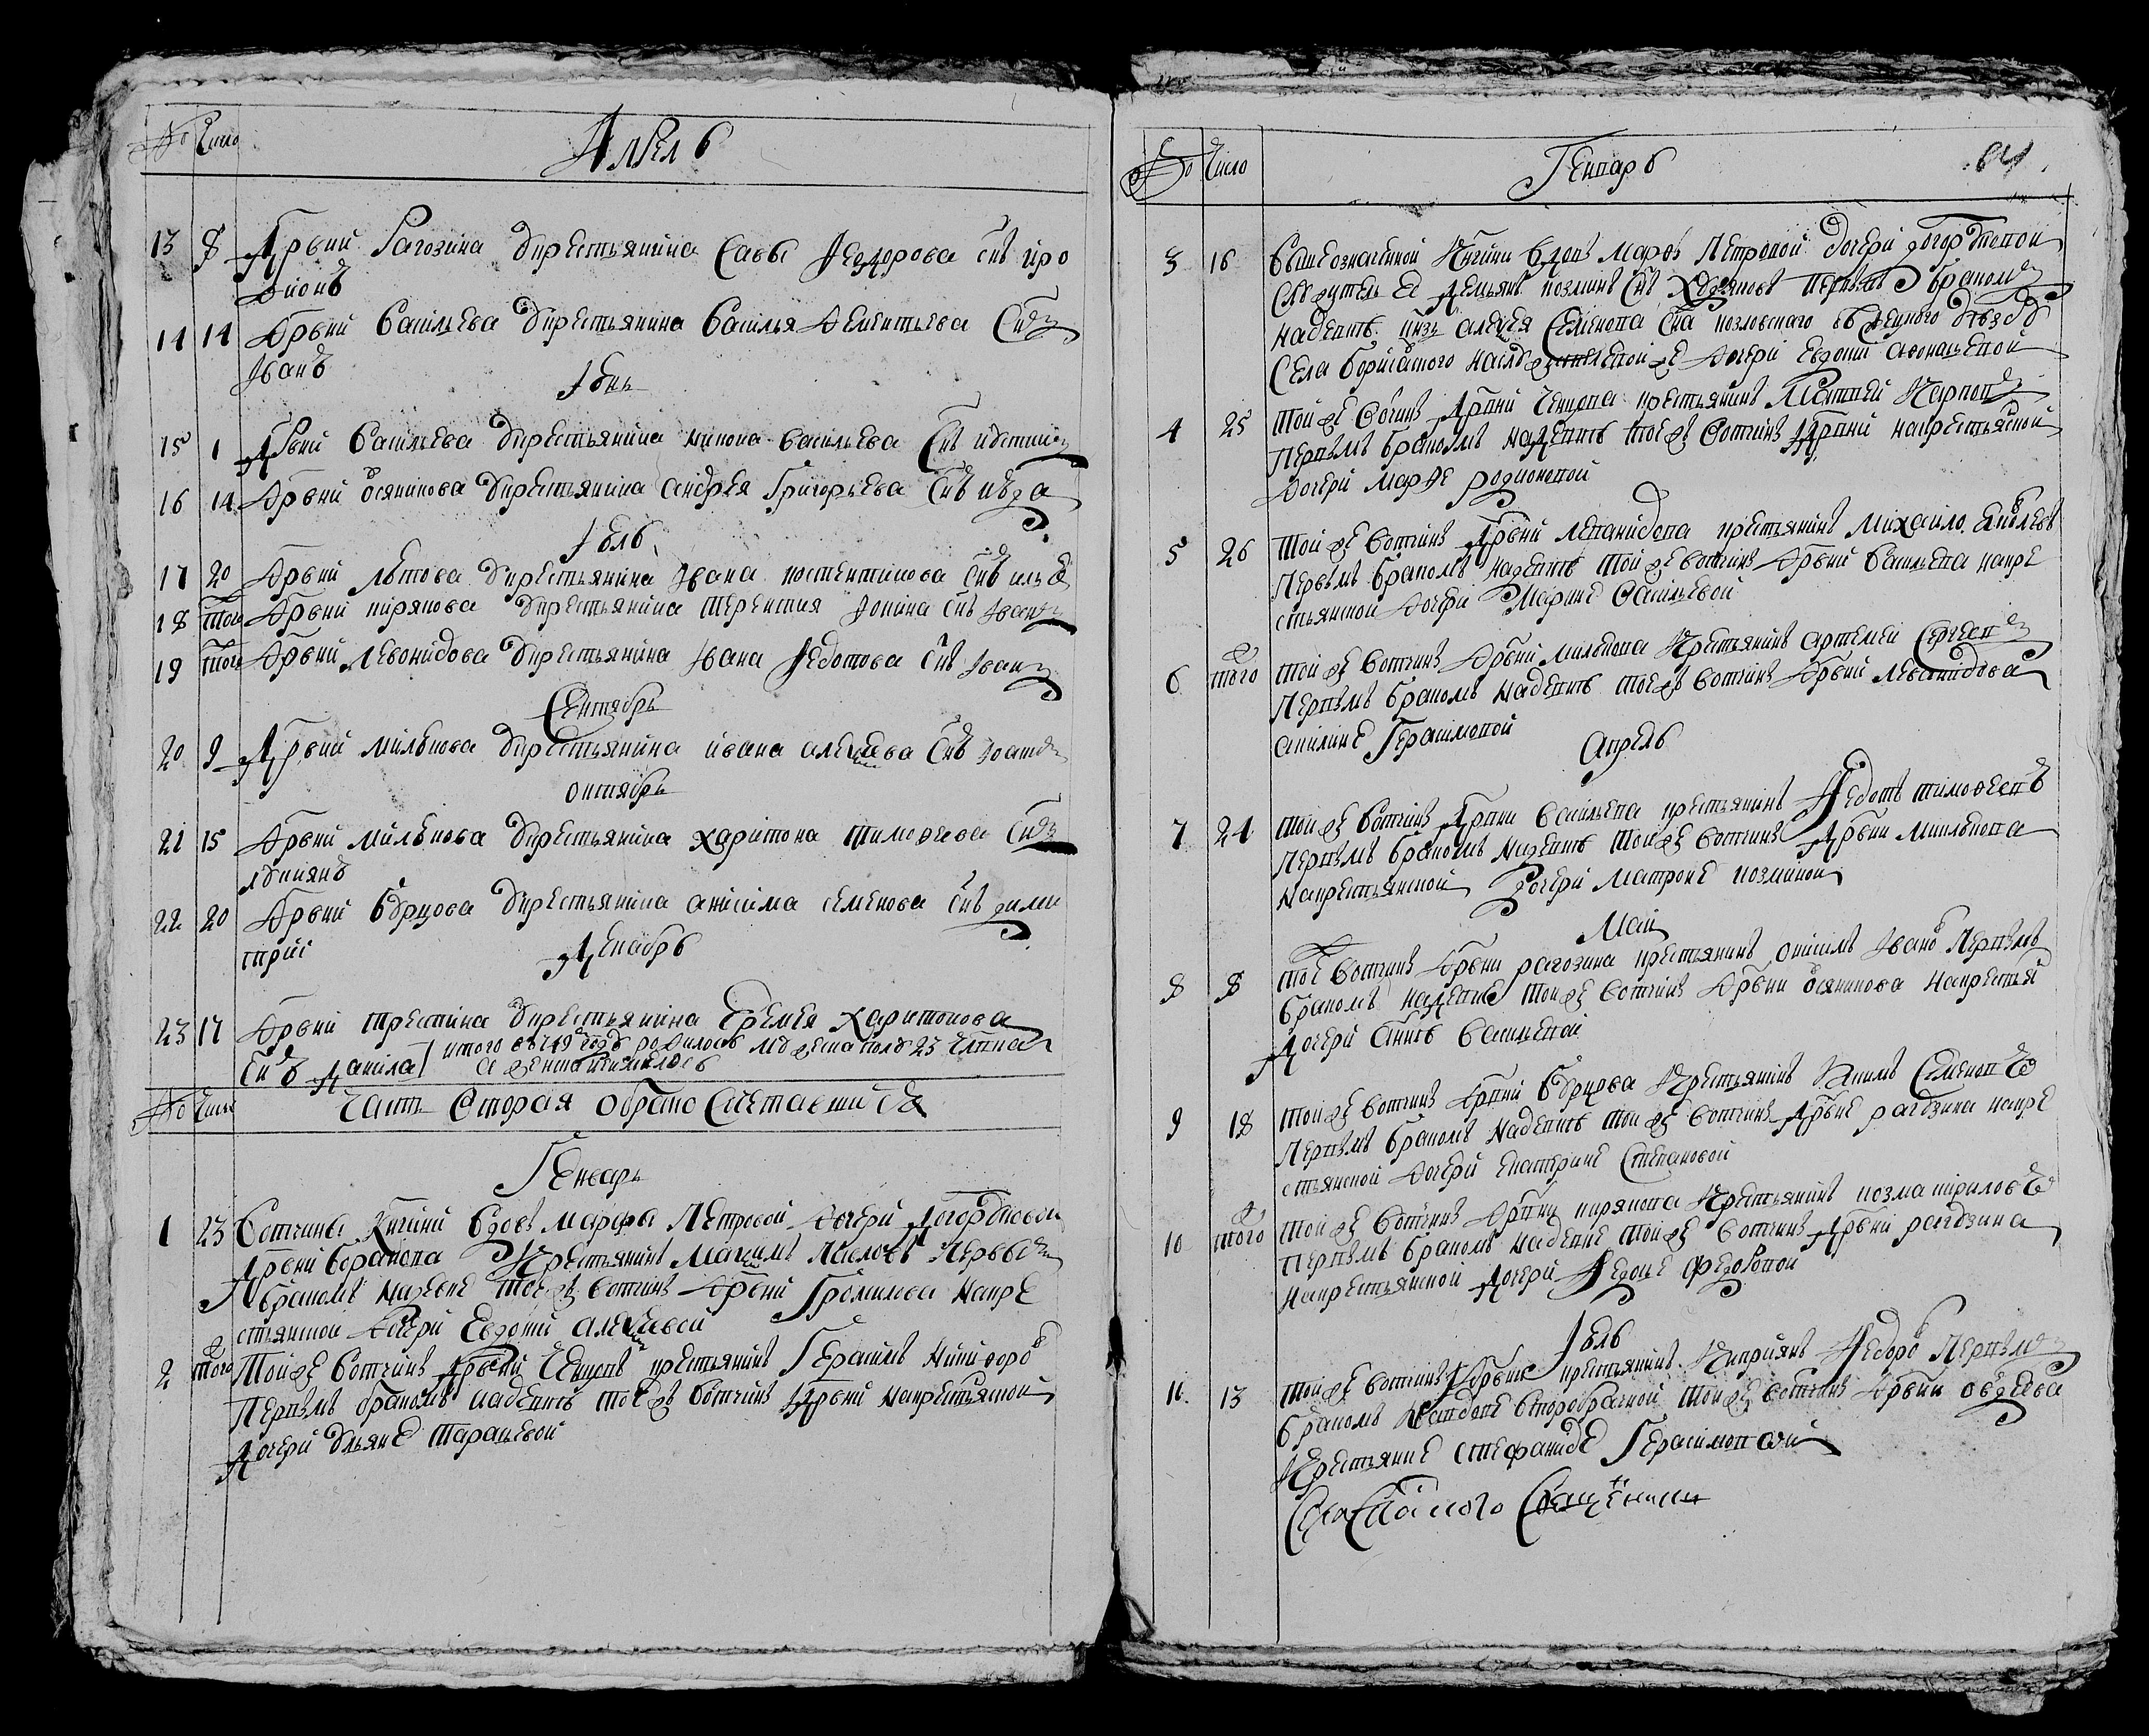 No Число Апрель
13 8 Дрвни Рагозина Укрестьянина Савы Федорова снъ иро
дионъ
14 14 Дрвни Васильева Укрестьянина Василья Дементьева Снъ
Иванъ
Июнь
15 1 Дрвни Васильева Укрестьянина Василева Снъ
16 14 Дрвни Осяникова Укрестьянина андрея Григорьева Снъ
Июль
17 20 Дрвни Летова Укрестьянина Ивана костентинова Снъ илья
18 того Дрвни пирякова Укрестьянина терентия Снъ Иванъ
19 того Дрвни Левонидова Укрестьянина Ивана Федотова Снъ Иванъ
Сентябрь
20 9 Дрвни милюкова Укрестьянина ивана алеѯѣева Снъ
октябрь
21 15 Дрвни милюкова Укрестьянина харитона тимофеева Снъ
лукиянъ
22 20 Дрвни Бурцова Укрестьянина анисима семенова Снъ дми
трий
Декабрь
23 17 Дрвни третина Укрестьянина Еремея Харитонова
Снъ Данила итого въ 749 году родилось мужеска полу 23 члвка
а женска
No Число Часть Вторая о браносочетавшихся
Генварь
1 23 Вотчины Кнгини Вдовы Марфы Петровой Дочери Долгоруковой
Дрвни Боракова Крестьянинъ Маѯимъ Павловъ Первымъ
бракомъ на девке тоежъ вотчины Дрвни Громилова на кре
стьянской Дочери Евдокии алеѯѣевой
2 того Той же вотчины Дрвни Ченцова крестьянинъ Герасимъ Никифоровъ
Первымъ бракомъ на девкѣ тоежъ вотчины Дрвни на крестьянской
Дочери Ульяне Тарасьевой
No Число Генварь 64
3 16 Вышеозначенной Кнгини Вдовы Марфы Петровой дочери долгоруковой
Служитель ее Демьянъ козминъ снъ первымъ бракомъ
на девкѣ кнзя алеѯѣя Семенова сна козловскаго
Села Борисского дочери Евдокии афонасьевой
4 25 Той же вотчины Дрвни Ченцова крестьянинъ Матвей Карповъ
Первымъ бракомъ на девкѣ тоежъ вотчины Дрвни на крестьянской
Дочери Марфе родионовой
5 26 Той же вотчины Дрвни Леванидова крестьянинъ Михайло Яковлевъ
Первымъ бракомъ на девкѣ той же вотчины Дрвни Васильева на кре
стьянской Дочери Марине Васильевой
6 того той же вотчины Дрвни милюкова Крестьянинъ артемеи Сергеевъ
Первымъ бракомъ на девкѣ тоежъ вотчины Дрвни Левонидова
акилине Герасимовой
Апрель
7 24 той же вотчины Дрвни Васильева крестьянинъ Федотъ тимофеевъ
Первымъ бракомъ на девкѣ той же вотчины Дрвни Милюкова
на крестьянской дочери Матроне козминой
Май
8 8 тое вотчины Дрвни рагозина крестьянинъ онисимъ Ивановъ Первымъ
бракомъ на девке той же вотчины Дрвни осяникова на крестьянской
Дочери Аннѣ Васильевой
9 18 той же вотчины Дрвни Бурцова Крестьянинъ Якимъ Семеновъ
Первымъ бракомъ на девкѣ той же вотчины Дрвне рагозина на кре
стьянской Дочери Екатерине Степановой
10 того той же вотчины Дрвни пирякова Крестьянинъ козма кириловъ
Первымъ бракомъ на девке той же вотчины Дрвни рагозина
на крестьянской Дочери Федоре Федоровой
Июль
11 13 той же вотчины Дрвни крестьянинъ Киприянъ Федоровъ Первымъ
бракомъ на вдове второбрачной той же вотчины Дрвни овдеева
Крестьянке стефаниде Герасимовой
Села Спаского Священникъ